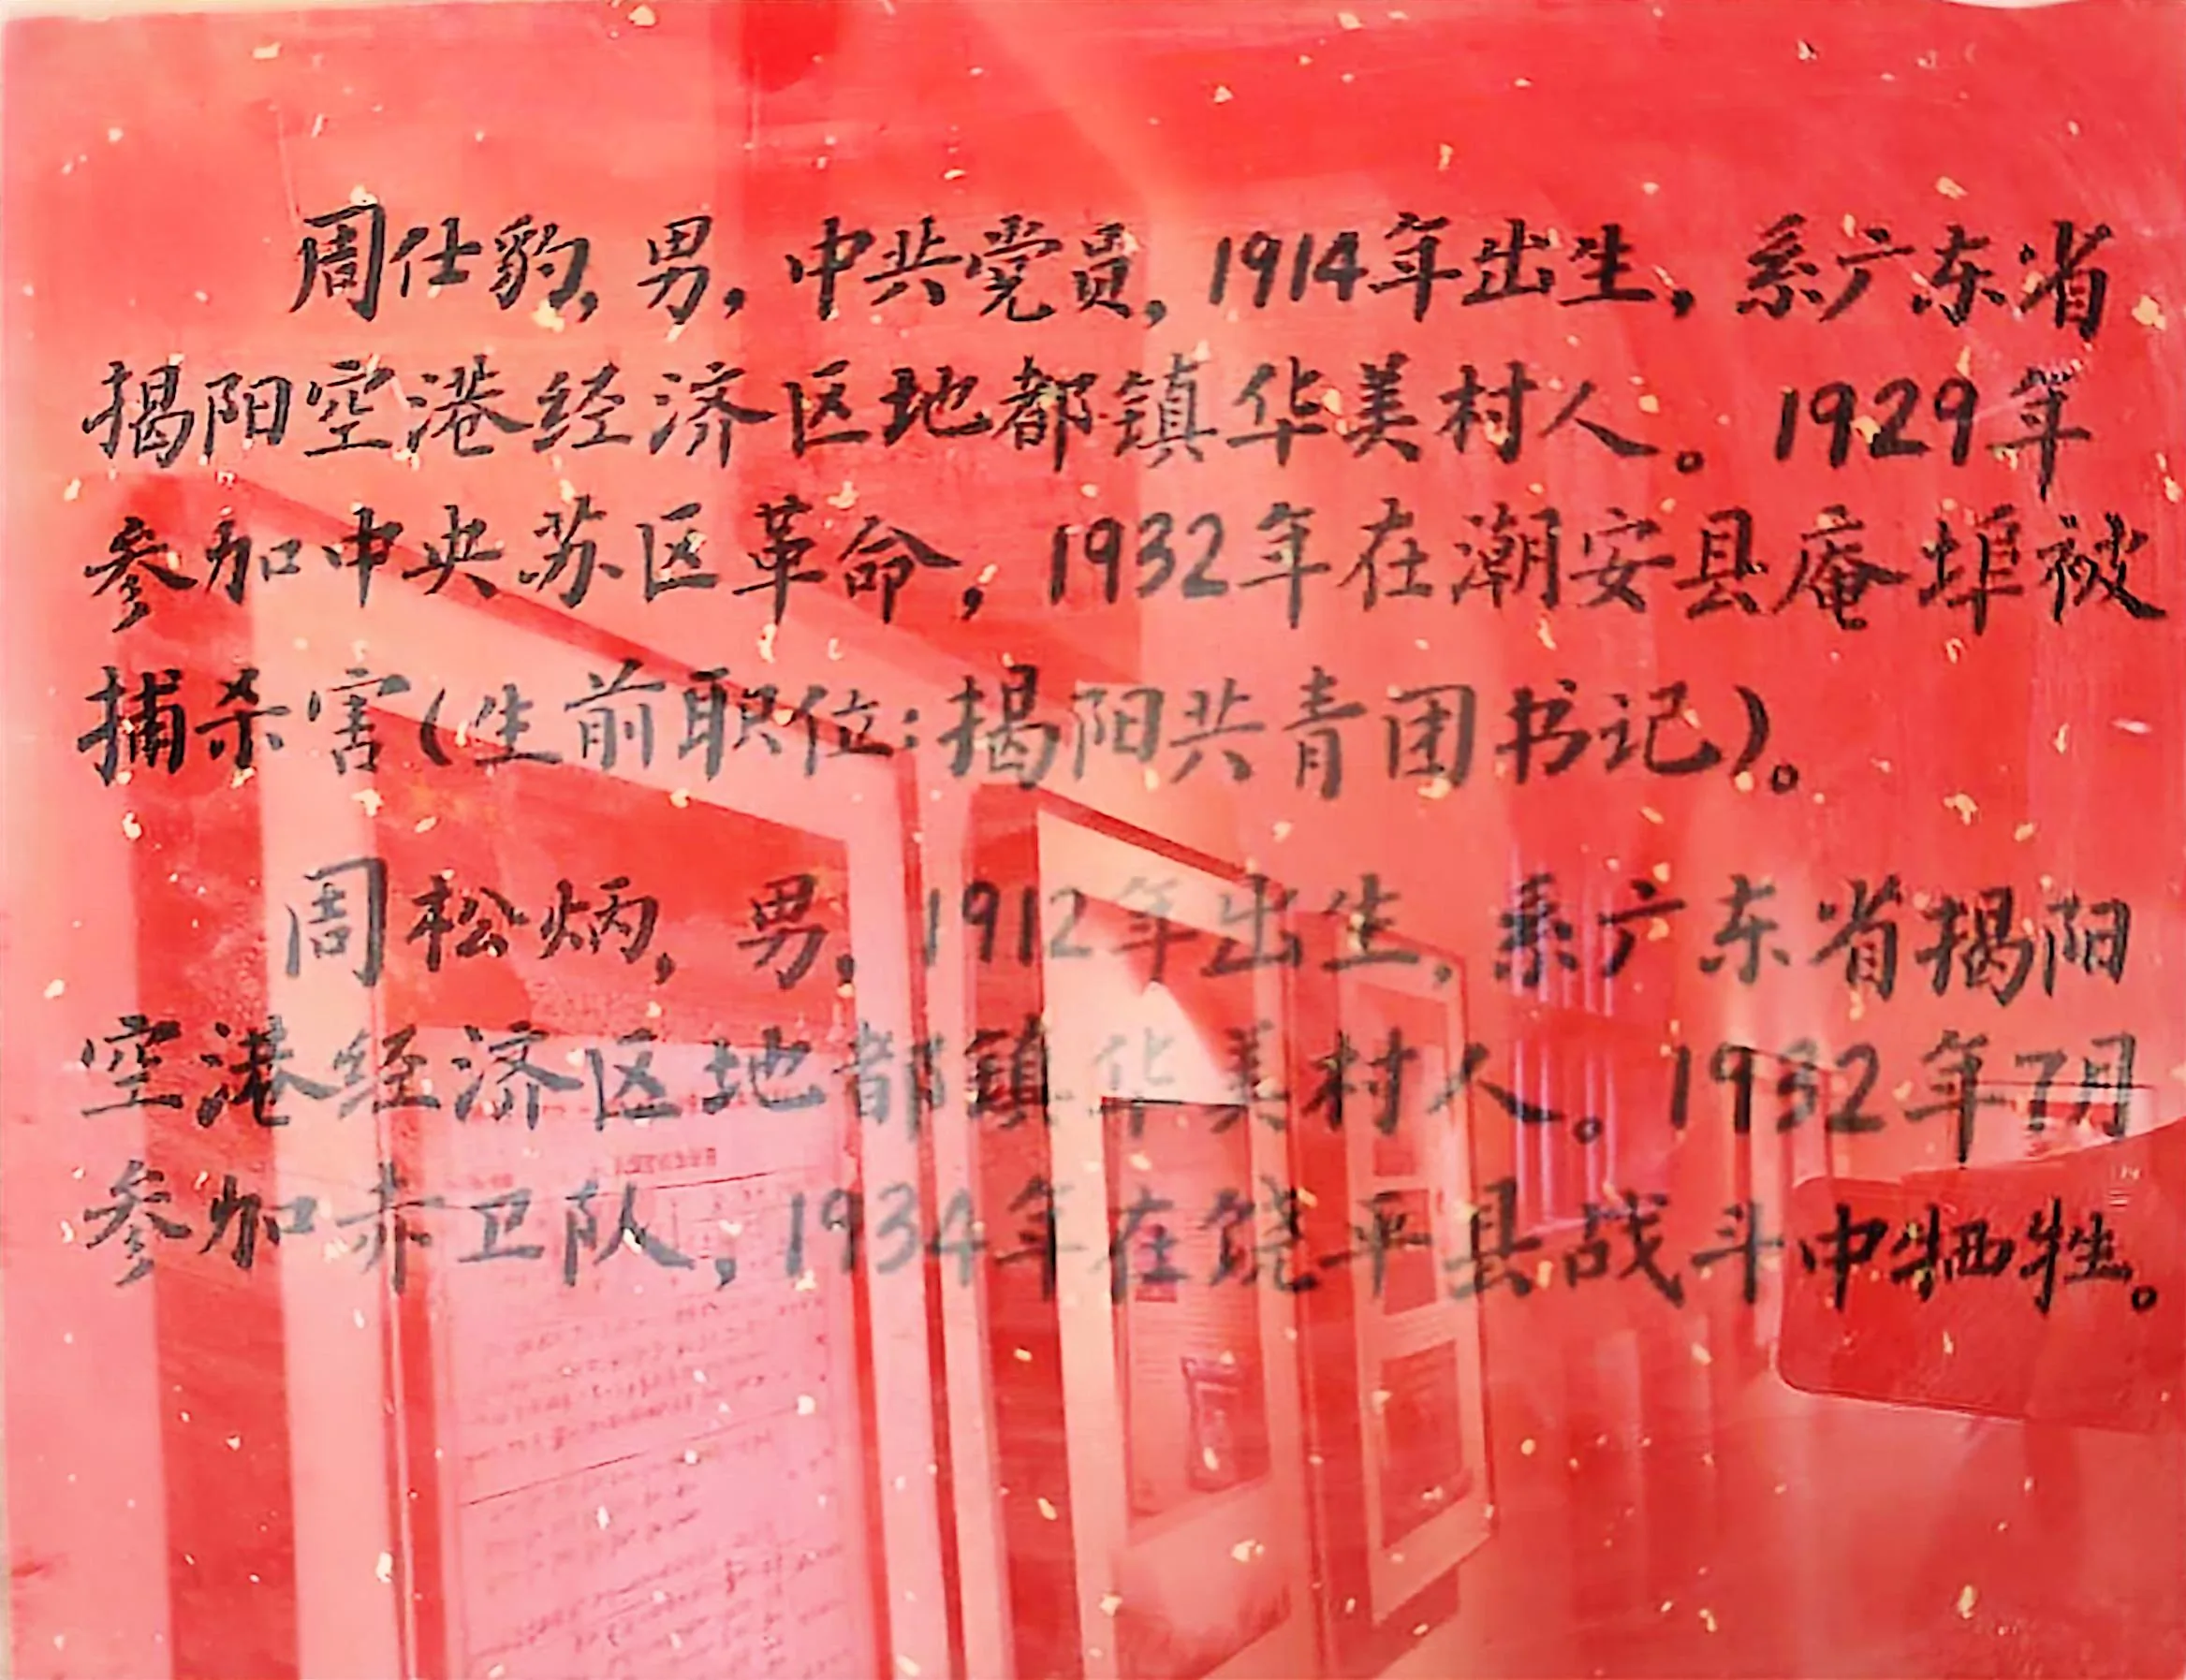 周仕豹，男，中共党员，1914年出生，系广东省
揭阳空港经济区地都镇华美村人。1929年
参加中央苏区革命，1932年在潮安县庵埠被
捕杀害（生前职位：揭阳共青团书记）。
周松炳，男，1912年出生，系广东省揭阳
空港经济区地都镇华美村人。1932年7月
参加赤卫队，1934年在饶平县战斗中牺牲。